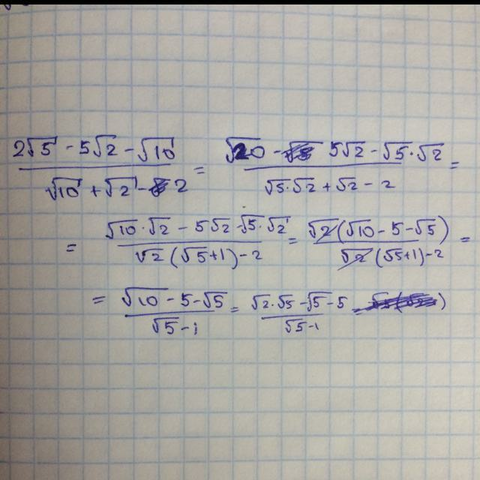 (2√5 - 5√2 - √10)/(√10 + √2 - 2) = (√20 - 5√2 - √5·√2)/(√5·√2 + √2 - 2) =
= (√10·√2 - 5√2 - √5·√2)/(√2(√5+1) - 2) = (√2(√10 - 5 - √5))/(√2(√5+1) - 2) =
= (√10 - 5 - √5)/(√5 - 1) = (√2·√5 - √5 - 5)/(√5 - 1)